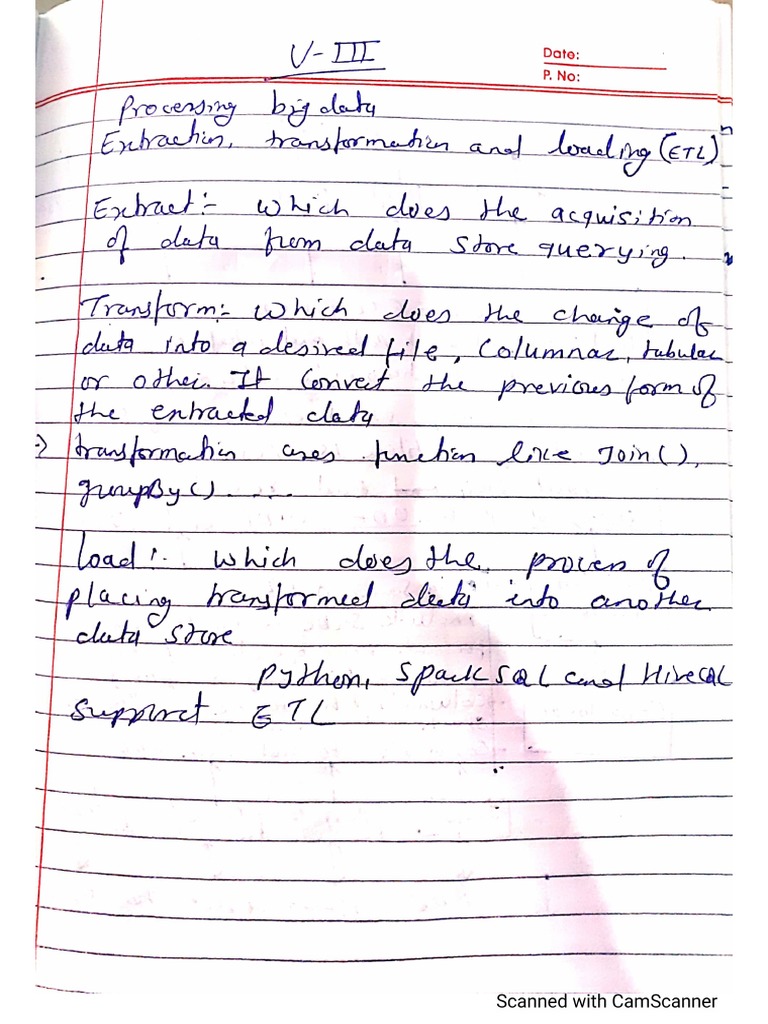 U-III
Date:
P. No:
Processing big data
Extraction, transformation and loading (ETL)
Extract :- which does the acquisition
of data from data store querying.
Transform:- which does the change of
data into a desired file, columnar, tabular
or other. It convert the previous form of
the extracted data
=> transformation uses function like Join(),
groupBy() .....
Load :- which does the process of
placing transformed data into another
data store
Python, Spark SQL and HiveQL
support ETL
Scanned with CamScanner